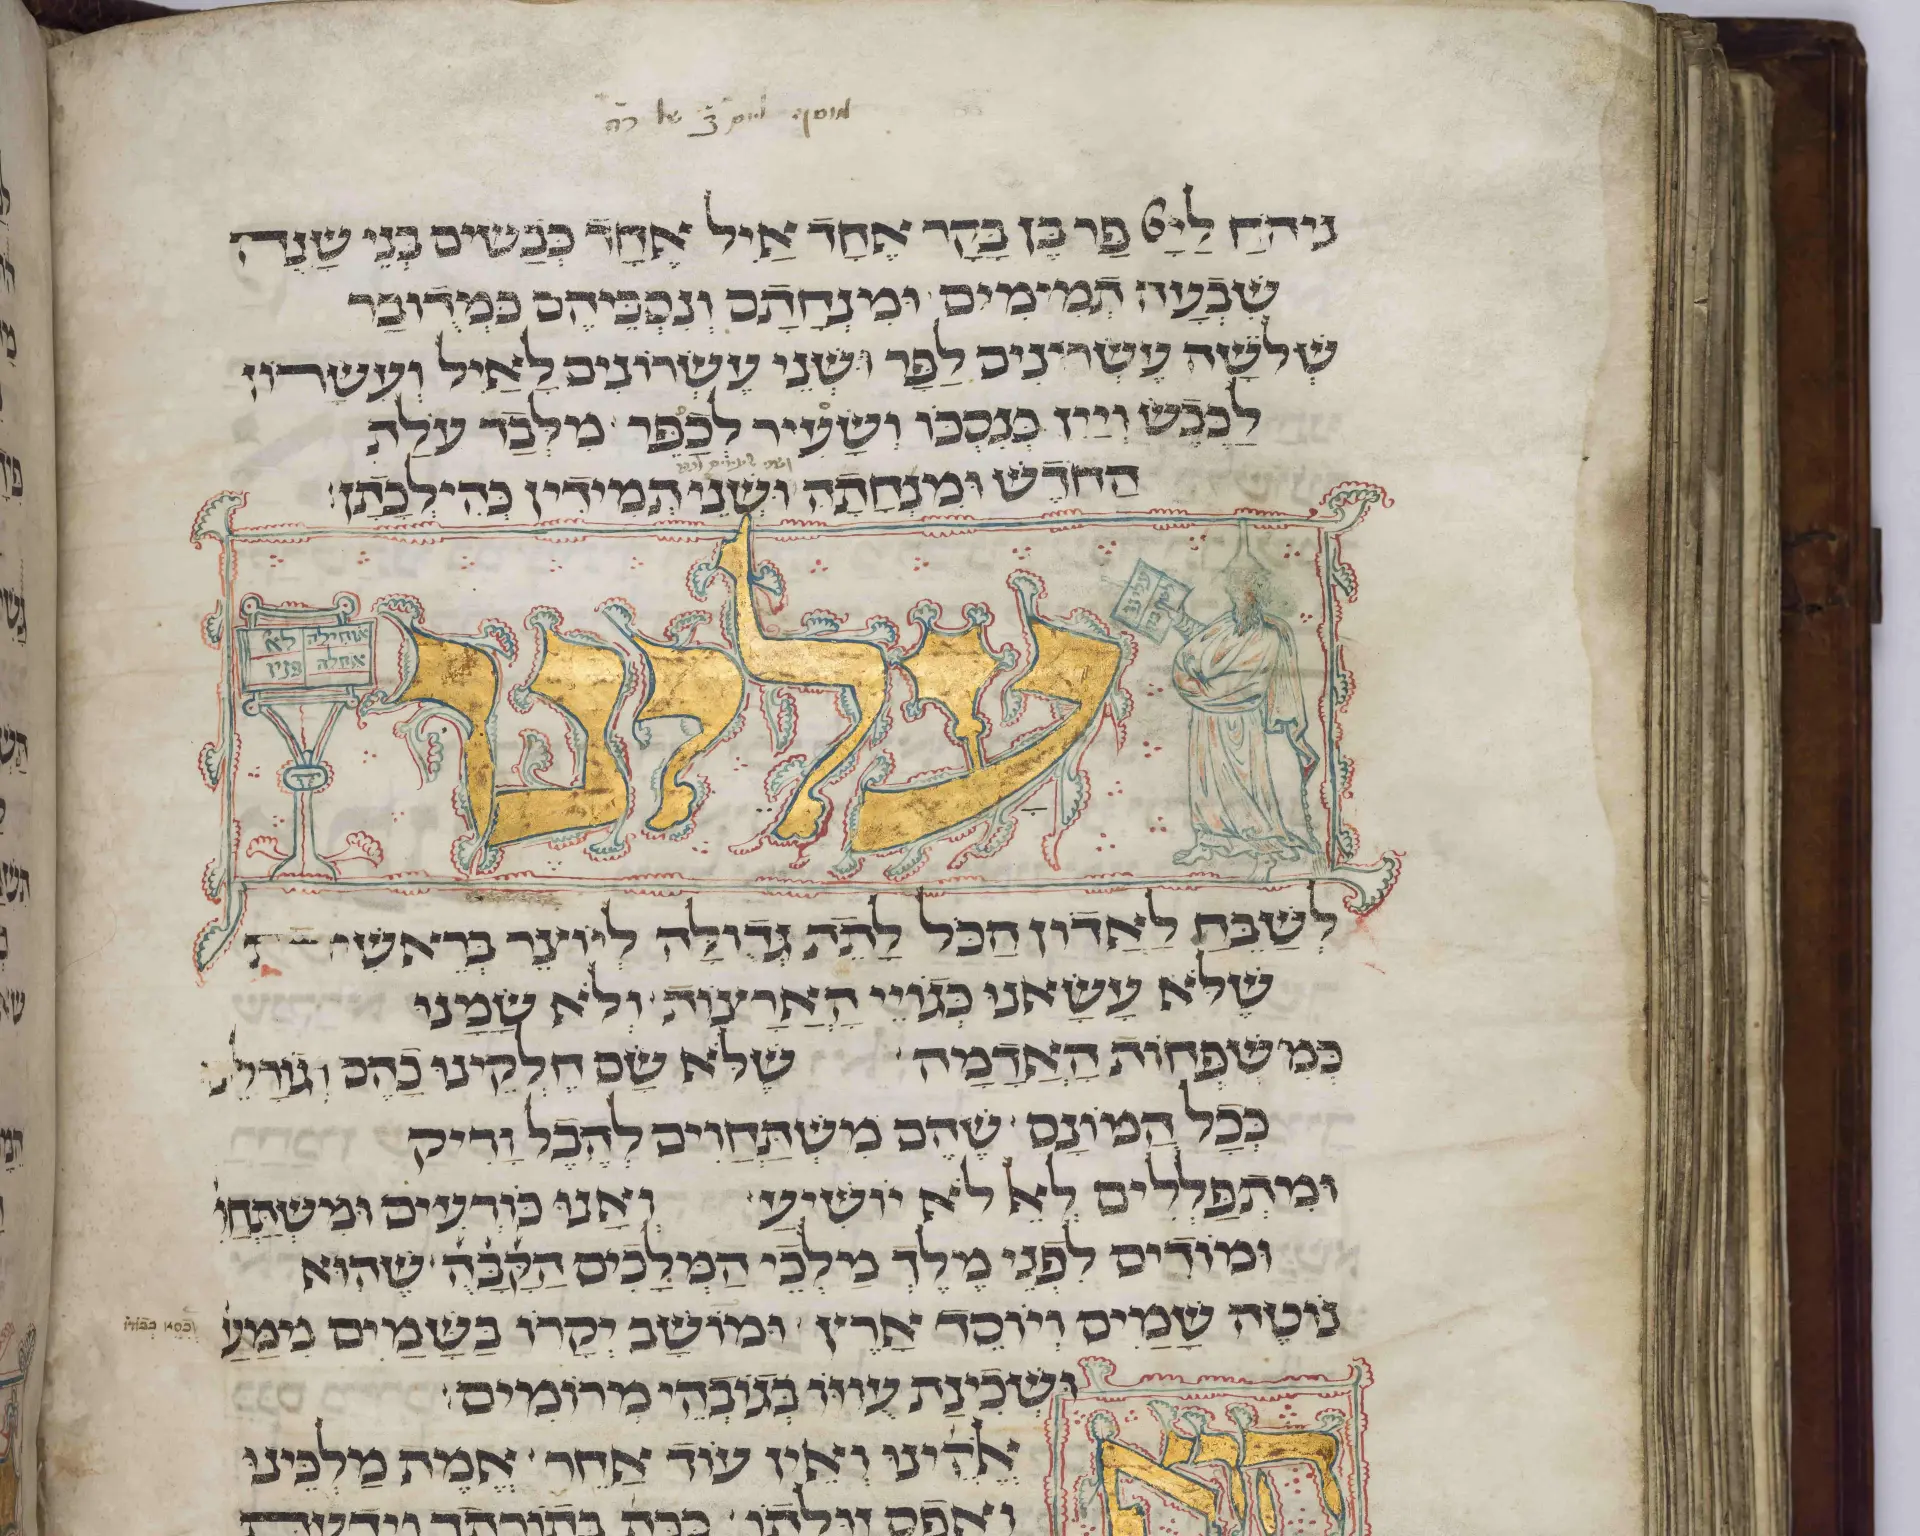 מוסף ליום ב׳ של ר״ה
ניחֹחַ לַיְיָ פַּר בֶּן בָּקָר אֶחָד אַיִל אֶחָד כְּבָשִׂים בְּנֵי שָׁנָה
שִׁבְעָה תְּמִימִים׳ וּמִנְחָתָם וְנִסְכֵּיהֶם כִּמְדוּבָּר
שְׁלֹשָׁה עֶשְׂרוֹנִים לַפָּר וּשְׁנֵי עֶשְׂרוֹנִים לָאַיִל וְעִשָּׂרוֹן
לַכֶּבֶשׂ וְיַיִן כְּנִסְכּוֹ וְשָׂעִיר לְכַפֵּר׳ מִלְּבַד עֹלַת
הַחֹדֶשׁ וּמִנְחָתָהּ וּשְׁנֵי תְמִידִין כְּהִילְכָתָן׃
עלינו
אוחילה לאל
אחלה פניו
עלינו
לְשַׁבֵּחַ לַאֲדוֹן הַכֹּל לָתֵת גְּדוּלָּה לְיוֹצֵר בְּרֵאשִׁית
שֶׁלֹּא עָשָׂאנוּ כְּגוֹיֵי הָאֲרָצוֹת׳ וְלֹא שָׂמָנוּ
כְּמִשְׁפְּחוֹת הָאֲדָמָה׳ שֶׁלֹּא שָׂם חֶלְקֵינוּ כָּהֶם וְגוֹרָלֵינוּ
כְּכָל הֲמוֹנָם׳ שֶׁהֵם מִשְׁתַּחֲוִים לְהֶבֶל וָרִיק
וּמִתְפַּלְלִים לְאֵל לֹא יוֹשִׁיעַ׳ וְאָנוּ כּוֹרְעִים וּמִשְׁתַּחֲוִ
וּמוֹדִים לִפְנֵי מֶלֶךְ מַלְכֵי הַמְּלָכִים הַקָּבָּ״הֿ׳ שֶׁהוּא
נוֹטֶה שָׁמַיִם וְיוֹסֵד אָרֶץ׳ וּמוֹשַׁב יְקָרוֹ בַּשָּׁמַיִם מִמַּעַ
וּשְׁכִינַת עֻוּזּוֹ בְּגוֹבְהֵי מְרוֹמִים׃
הוא
אֱלֹהֵינוּ וְאֵין עוֹד אַחֵר׳ אֱמֶת מַלְכֵּינוּ
וְאֶפֶס זוּלָתוֹ׳ כַּכָּתוּב בְּתוֹרָתָךְ וְיָדַעְתָּ